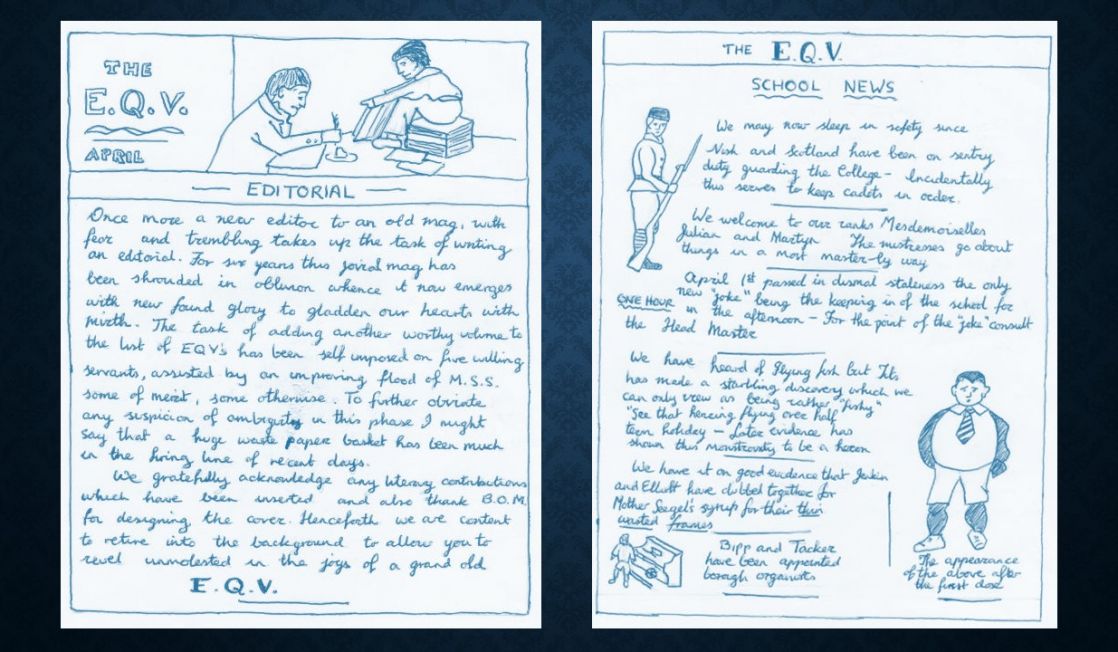 THE
E.Q.V.
APRIL
EDITORIAL
Once more a new editor to an old mag, with
fear and trembling takes up the task of writing
an editorial. For six years this jovial mag has
been shrouded in oblivion whence it now emerges
with new found glory to gladden our hearts with
mirth. The task of adding another worthy volume to
the list of EQV's has been self imposed on five willing
servants, assisted by an improving flood of M.S.S.
some of merit, some otherwise. To further obviate
any suspicion of ambiguity in this phase I might
say that a huge waste paper basket has been much
in the firing line of recent days.
We gratefully acknowledge any literary contributions
which have been inserted and also thank B.O.M.
for designing the cover. Henceforth we are content
to retire into the background to allow you to
revel unmolested in the joys of a grand old
E.Q.V.
THE E.Q.V.
SCHOOL NEWS
We may now sleep in safety since
Nish and Scotland have been on sentry
duty guarding the College - Incidentally
this serves to keep cadets in order.
We welcome to our ranks Mesdemoiselles
Julian and Martyn The mistresses go about
things in a most master-ly way
April 1st passed in dismal staleness the only
new "joke" being the keeping in of the school for
ONE HOUR in the afternoon - For the point of the "joke" consult
the Head Master
We have heard of flying fish but
has made a startling discovery which we
can only view as being rather "fishy"
"See that herring flying over half
term holiday - Later evidence has
shown this monstrosity to be a heron
We have it on good evidence that Jenkin
and Elliott have clubbed together for
Mother Seegel's syrup for their thin
wasted frames
Bipp and Tacker
have been appointed
borough organists
The appearance
of the above after
the first dose